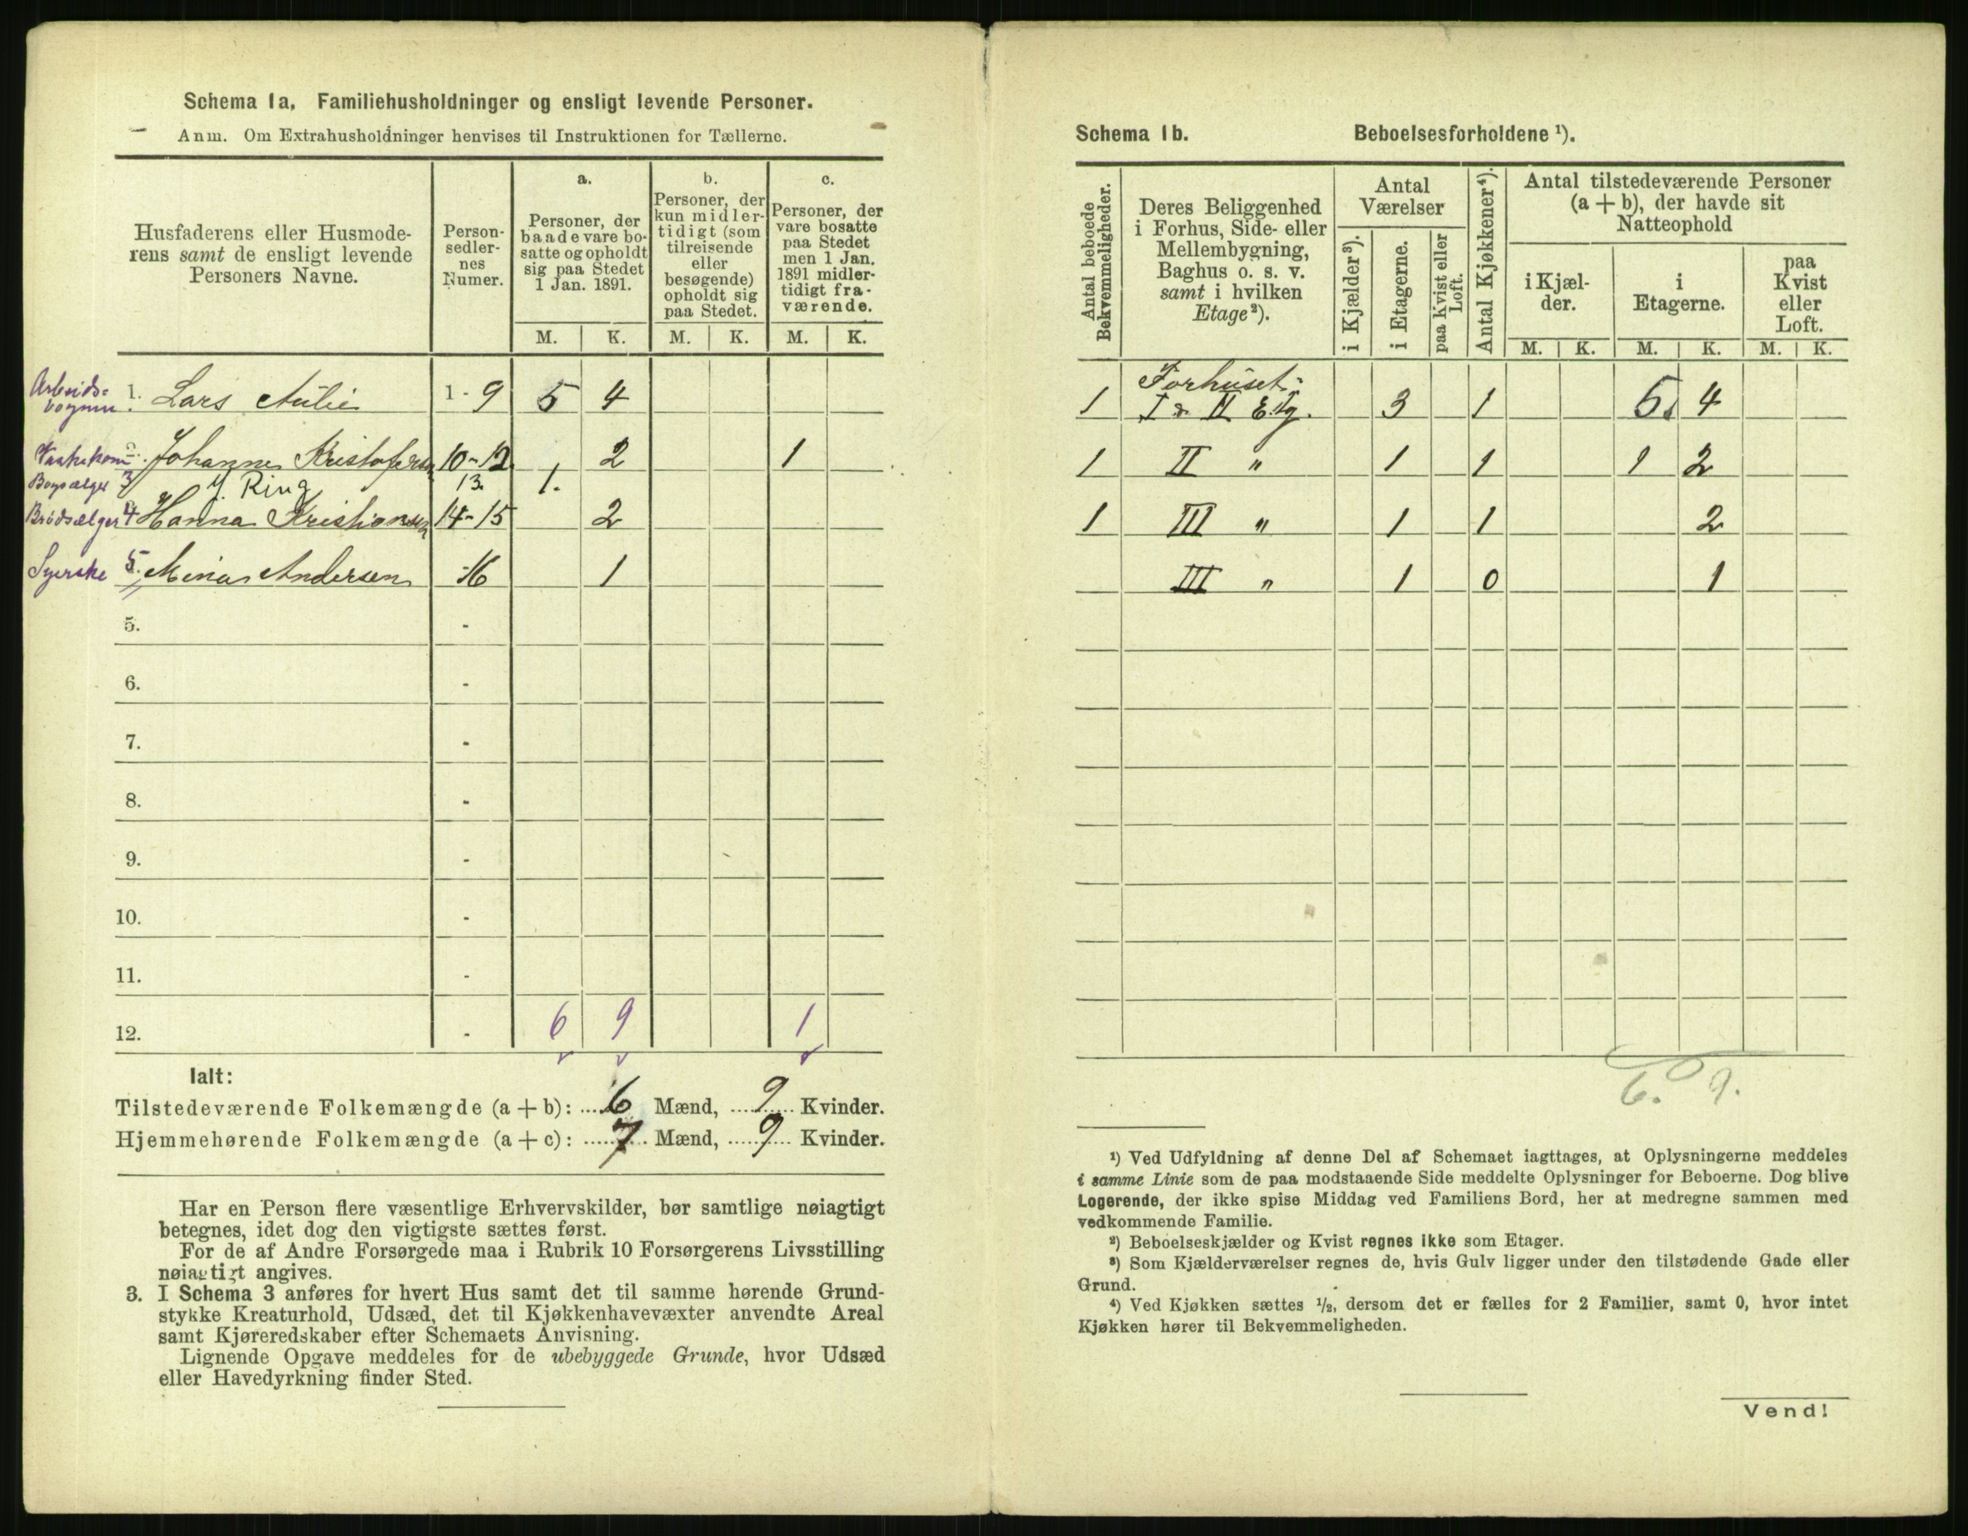 Schema 1a. Familiehusholdninger og ensligt levende Personer.
Anm. Om Extrahusholdninger henvises til Instruktionen for Tællerne.
Husfaderens eller Husmode-
rens samt de ensligt levende
Personers Navne.
Person-
sedler-
nes
Numer.
a.
Personer, der
baade vare bo-
satte og opholdt
sig paa Stedet
1 Jan. 1891.
b.
Personer, der
kun midler-
tidigt (som
tilreisende
eller
besøgende)
opholdt sig
paa Stedet.
c.
Personer, der
vare bosatte
paa Stedet
men 1 Jan.
1891 midler-
tidigt fra-
værende.
M. K. M. K. M. K.
Arbeids=
1. Lars Aulie 1 - 9 5 4
Johannes Kristofersen 10-12 2 1
Bogsælger 3 J. Ring 13. 1.
Brødsælger 4 Hanna Kristiansen 14-15 2
Syerske 5. Mina Andersen 16 1
5. -
6. -
7. -
8. -
9. -
10. -
11. -
12. - 6 9 1
Ialt:
Tilstedeværende Folkemængde (a + b): 6 Mænd, 9 Kvinder.
Hjemmehørende Folkemængde (a + c): 7 Mænd, 9 Kvinder.
Har en Person flere væsentlige Erhvervskilder, bør samtlige nøiagtigt
betegnes, idet dog den vigtigste sættes først.
For de af Andre Forsørgede maa i Rubrik 10 Forsørgerens Livsstilling
nøiagtigt angives.
3. I Schema 3 anføres for hvert Hus samt det til samme hørende Grund-
stykke Kreaturhold, Udsæd, det til Kjøkkenhavevæxter anvendte Areal
samt Kjøreredskaber efter Schemaets Anvisning.
Lignende Opgave meddeles for de ubebyggede Grunde, hvor Udsæd
eller Havedyrkning finder Sted.
Schema 1b. Beboelsesforholdene ¹).
Antal beboede
Bekvemmeligheder.
Deres Beliggenhed
i Forhus, Side- eller
Mellembygning,
Baghus o. s. v.
samt i hvilken
Etage²).
Antal
Værelser
i Kjælder³).
i Etagerne.
paa Kvist eller
Loft.
Antal Kjøkkener⁴).
Antal tilstedeværende Personer
(a + b), der havde sit
Natteophold
i Kjæl-
der.
i
Etagerne.
paa
Kvist
eller
Loft.
M. K. M. K. M. K.
Forhuset:
1 I & II Etg. 3 1 5 4
1 II " 1 1 1 2
1 III " 1 1 2
III " 1 0 1
6. 9.
¹) Ved Udfyldning af denne Del af Schemaet iagttages, at Oplysningerne meddeles
i samme Linie som de paa modstaaende Side meddelte Oplysninger for Beboerne. Dog blive
Logerende, der ikke spise Middag ved Familiens Bord, her at medregne sammen med
vedkommende Familie.
²) Beboelseskjælder og Kvist regnes ikke som Etager.
³) Som Kjælderværelser regnes de, hvis Gulv ligger under den tilstødende Gade eller
Grund.
⁴) Ved Kjøkken sættes ½, dersom det er fælles for 2 Familier, samt 0, hvor intet
Kjøkken hører til Bekvemmeligheden.
Vend!